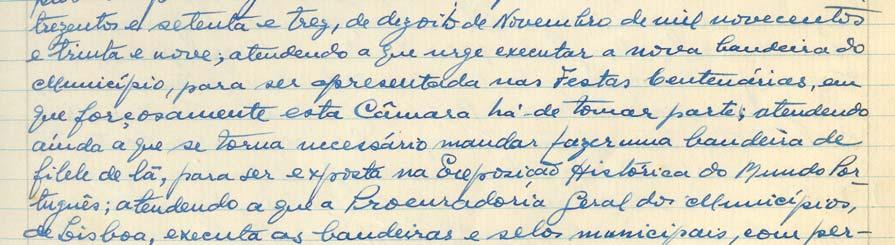 trezentos e setenta e trez, de dezoito de Novembro de mil novecentos
e trinta e nove; atendendo a que urge executar a nova bandeira do
Município, para ser apresentada nas Festas Centenárias, em
que forçosamente esta Câmara há-de tomar parte; atendendo
ainda a que se torna necessário mandar fazer uma bandeira de
filele de lã, para ser exposta na Exposição Histórica do Mundo Por
tuguês; atendendo a que a Procuradoria Geral dos Municípios,
de Lisboa, executa as bandeiras e selos municipais, com per-